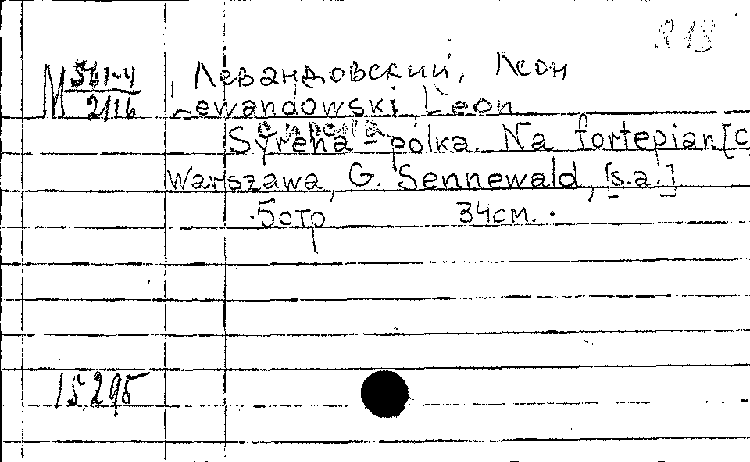 818
М 561-4
2116
Левандовский, Леон
Lewandowski Leon
Сирена
Syrena - polka. Na fortepian [C
Warszawa, G. Sennewald, [s.a.]
5стр 34см.
15295